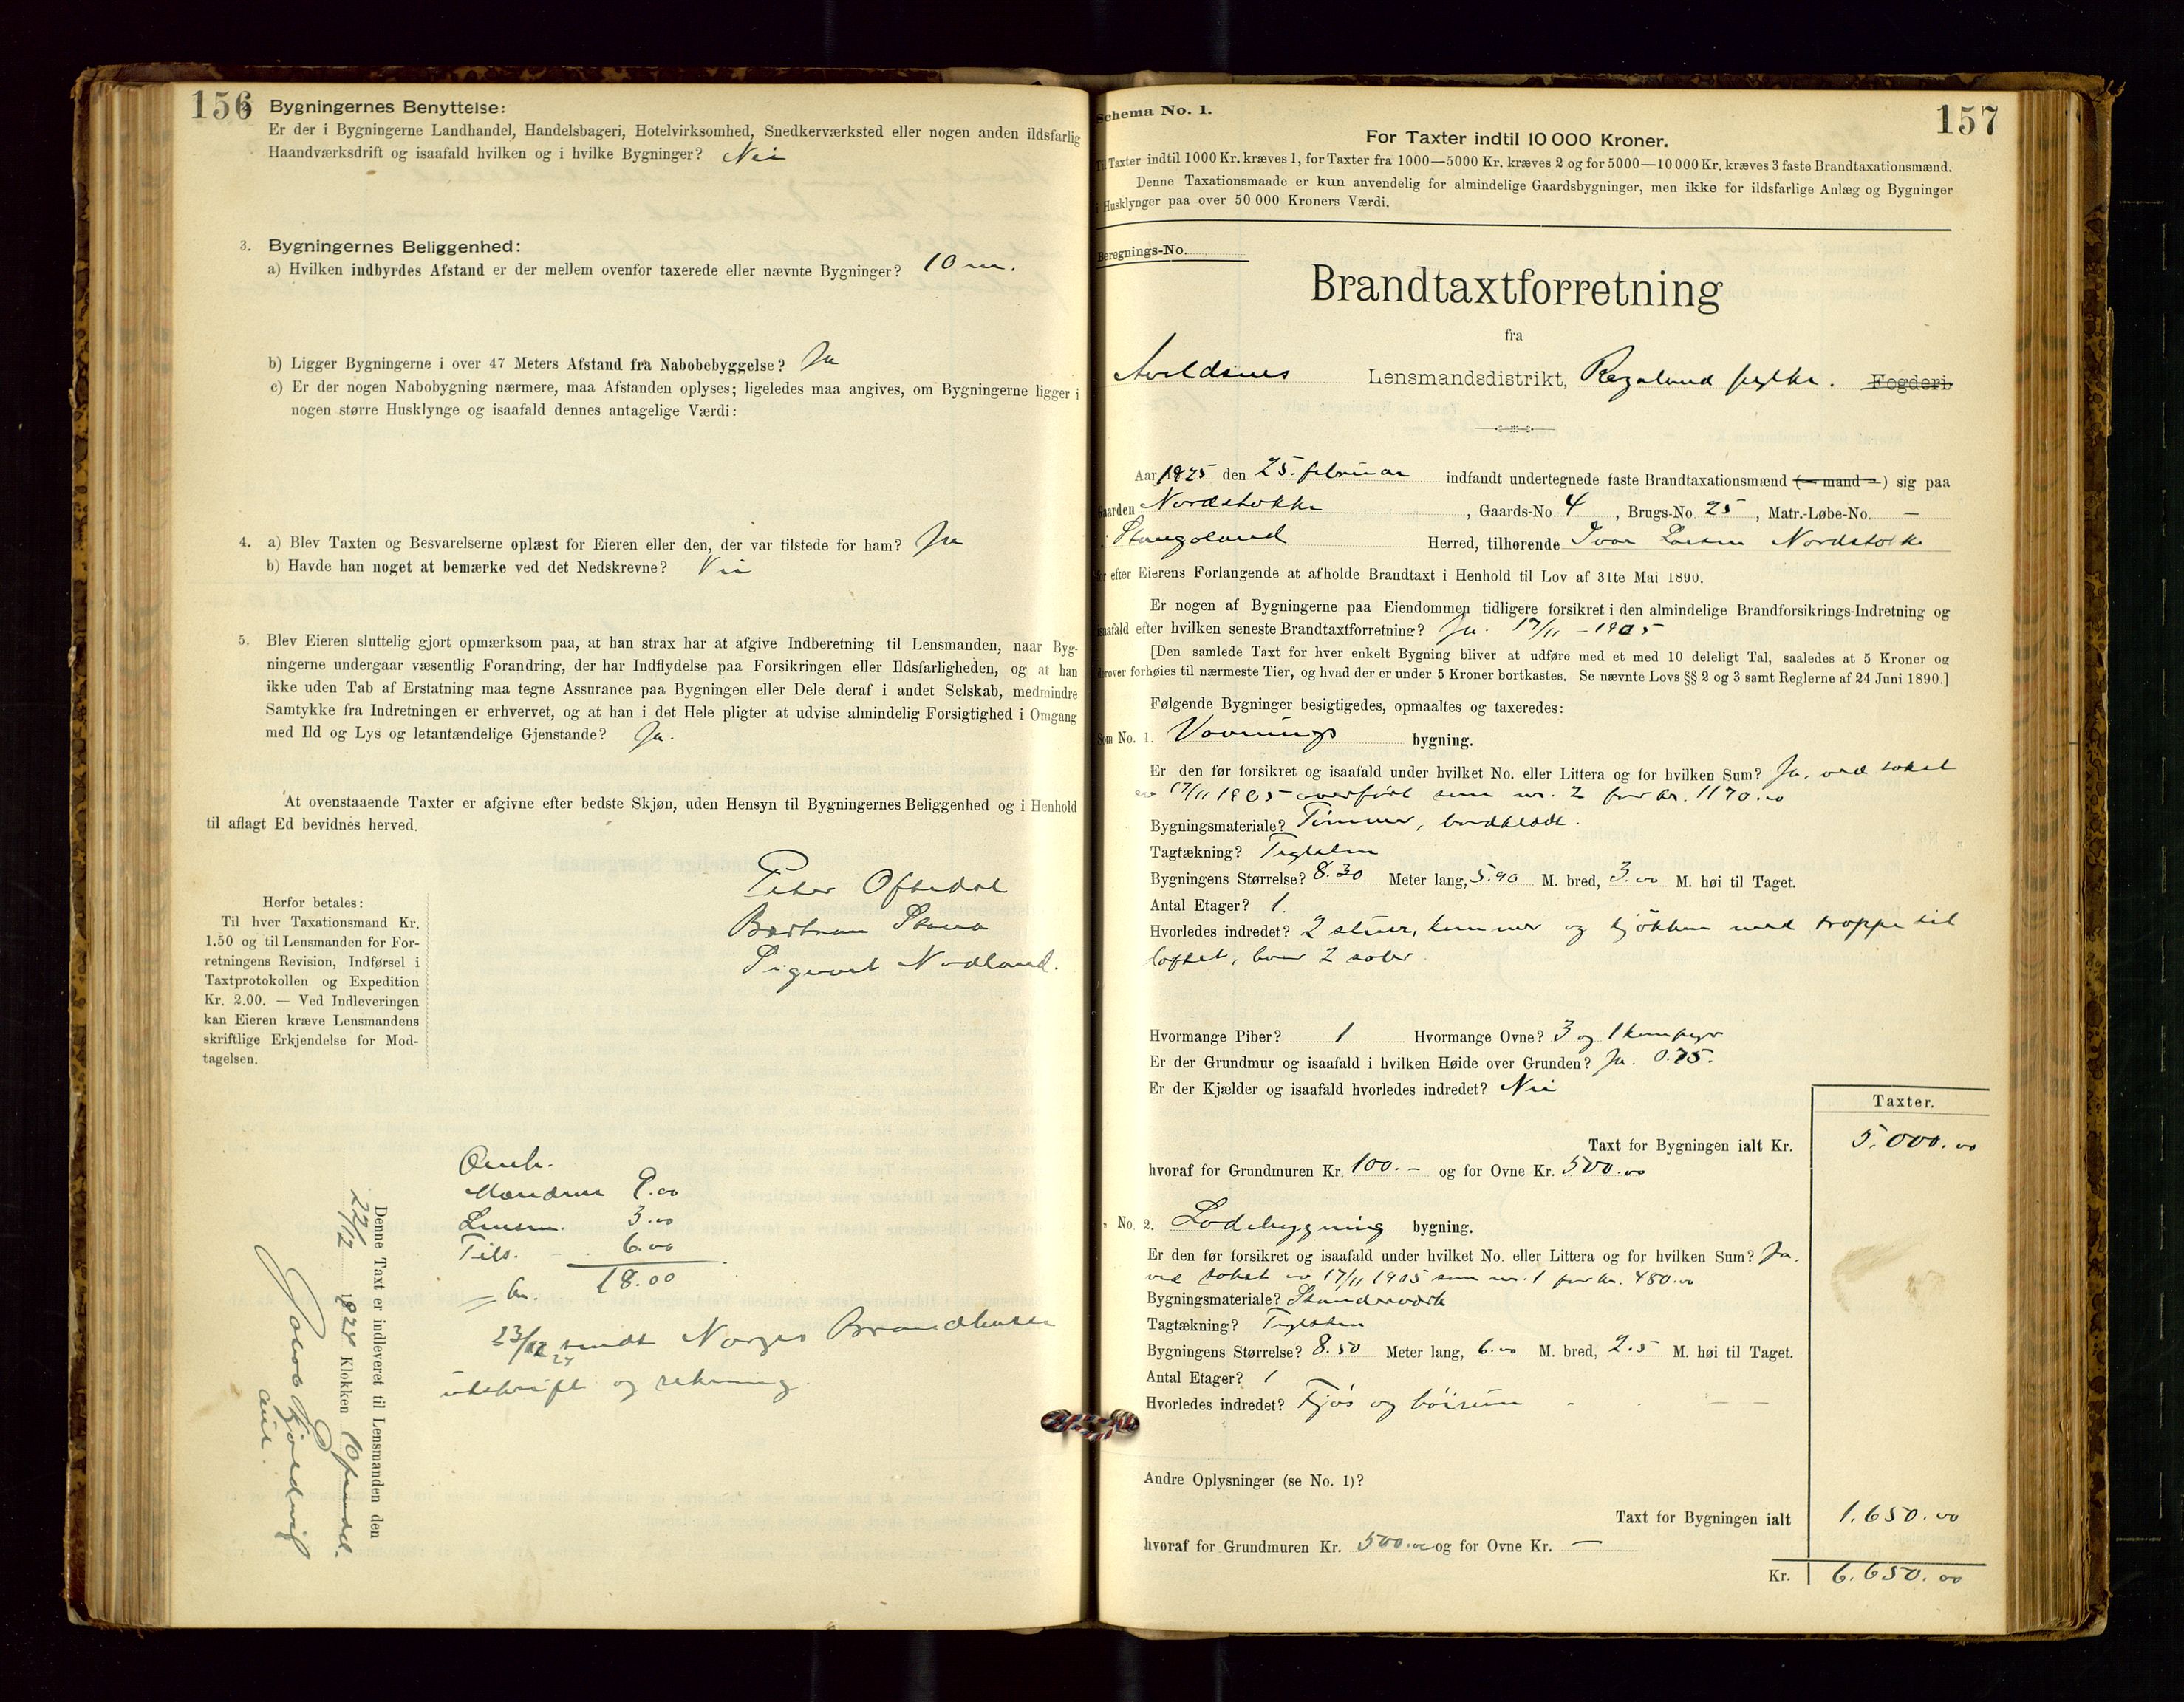 156
2. Bygningernes Benyttelse:
Er der i Bygningerne Landhandel, Handelsbageri, Hotelvirksomhed, Snedkerværksted eller nogen anden ildsfarlig
Haandværksdrift og isaafald hvilken og i hvilke Bygninger? Nei
3. Bygningernes Beliggenhed:
a) Hvilken indbyrdes Afstand er der mellem ovenfor taxerede eller nævnte Bygninger? 10 m.
b) Ligger Bygningerne i over 47 Meters Afstand fra Nabobebyggelse? Ja
c) Er der nogen Nabobygning nærmere, maa Afstanden oplyses; ligeledes maa angives, om Bygningerne ligger i
nogen større Husklynge og isaafald dennes antagelige Værdi:
4. a) Blev Taxten og Besvarelserne oplæst for Eieren eller den, der var tilstede for ham? Ja
b) Havde han noget at bemærke ved det Nedskrevne? Nei
5. Blev Eieren sluttelig gjort opmærksom paa, at han strax har at afgive Indberetning til Lensmanden, naar Byg-
ningerne undergaar væsentlig Forandring, der har Indflydelse paa Forsikringen eller Ildsfarligheden, og at han
ikke uden Tab af Erstatning maa tegne Assurance paa Bygningen eller Dele deraf i andet Selskab, medmindre
Samtykke fra Indretningen er erhvervet, og at han i det Hele pligter at udvise almindelig Forsigtighed i Omgang
med Ild og Lys og letantændelige Gjenstande? Ja.
At ovenstaaende Taxter er afgivne efter bedste Skjøn, uden Hensyn til Bygningernes Beliggenhed og i Henhold
til aflagt Ed bevidnes herved.
Peter Oftedal
Bertram Stava
Sigvart Nodland.
Herfor betales:
Til hver Taxationsmand Kr.
1.50 og til Lensmanden for For-
retningens Revision, Indførsel i
Taxtprotokollen og Expedition
Kr. 2.00. — Ved Indleveringen
kan Eieren kræve Lensmandens
skriftlige Erkjendelse for Mod-
tagelsen.
Omk.
Mændene 9.00
Lensm. 3.00
Tils. 6.00
= kr. 18.00
23/12 24 sendt Norges Brandkasse
utskrift og rekning.
Denne Taxt er indleveret til Lensmanden den
22/12 1924 Klokken 10 formdd.
Jakob
157
Schema No. 1.
For Taxter indtil 10 000 Kroner.
Til Taxter indtil 1000 Kr. kræves 1, for Taxter fra 1000—5000 Kr. kræves 2 og for 5000—10 000 Kr. kræves 3 faste Brandtaxationsmænd.
Denne Taxationsmaade er kun anvendelig for almindelige Gaardsbygninger, men ikke for ildsfarlige Anlæg og Bygninger
i Husklynger paa over 50 000 Kroners Værdi.
Beregnings-No.
Brandtaxtforretning
fra
Avaldsnes Lensmandsdistrikt, Rogaland fylke. Fogderi
Aar 1925 den 25. februar indfandt undertegnede faste Brandtaxationsmænd (- mand -) sig paa
Gaarden Nordstokke, Gaards-No. 4, Brugs-No. 25, Matr.-Løbe-No. —
i Stangaland Herred, tilhørende Ivar Larsen Nordstokke
for efter Eierens Forlangende at afholde Brandtaxt i Henhold til Lov af 31te Mai 1890.
Er nogen af Bygningerne paa Eiendommen tidligere forsikret i den almindelige Brandforsikrings-Indretning og
isaafald efter hvilken seneste Brandtaxtforretning? Ja. 17/11 - 1905
[Den samlede Taxt for hver enkelt Bygning bliver at udføre med et med 10 deleligt Tal, saaledes at 5 Kroner og
derover forhøies til nærmeste Tier, og hvad der er under 5 Kroner bortkastes. Se nævnte Lovs §§ 2 og 3 samt Reglerne af 24 Juni 1890.]
Følgende Bygninger besigtigedes, opmaaltes og taxeredes:
Som No. 1. Vaanings bygning.
Er den før forsikret og isaafald under hvilket No. eller Littera og for hvilken Sum? Ja, ved takst
av 17/11 1905 overført som nr. 2 for kr. 1170.00
Bygningsmateriale? Tømmer, bordklædt.
Tagtækning? Teglsten
Bygningens Størrelse? 8.30 Meter lang, 5.90 M. bred, 3.00 M. høi til Taget.
Antal Etager? 1.
Hvorledes indredet? 2 stuer, kammer og kjøkken med trappe til
loftet, hvor 2 saler.
Hvormange Piber? 1 Hvormange Ovne? 3 og 1 komfyr
Er der Grundmur og isaafald i hvilken Høide over Grunden? Ja. 0.75.
Er der Kjælder og isaafald hvorledes indredet? Nei
Taxter.
Taxt for Bygningen ialt Kr. 5.000.00
hvoraf for Grundmuren Kr. 100.- og for Ovne Kr. 500.00
" No. 2. Lodebygning bygning.
Er den før forsikret og isaafald under hvilket No. eller Littera og for hvilken Sum? Ja.
ved takst av 17/11 1905 som nr. 1 for kr. 480.00
Bygningsmateriale? Standerværk
Tagtækning? Teglsten
Bygningens Størrelse? 8.50 Meter lang, 6.00 M. bred, 2.5 M. høi til Taget.
Antal Etager? 1
Hvorledes indredet? Fjøs og høirum
Andre Oplysninger (se No. 1)?
Taxt for Bygningen ialt 1.650.00
hvoraf for Grundmuren Kr. 500.00 og for Ovne Kr. —
Kr. 6.650.00